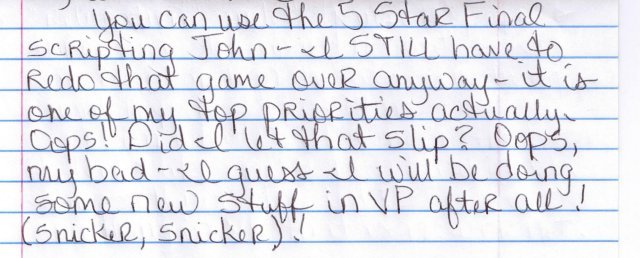 You can use the 5 Star Final
scripting John - I STILL have to
Redo that game over anyway - it is
one of my top priorities actually.
Oops!! Did I let that slip? Oops,
my bad - I guess I will be doing
some new stuff in VP after all!
(snicker, snicker)!